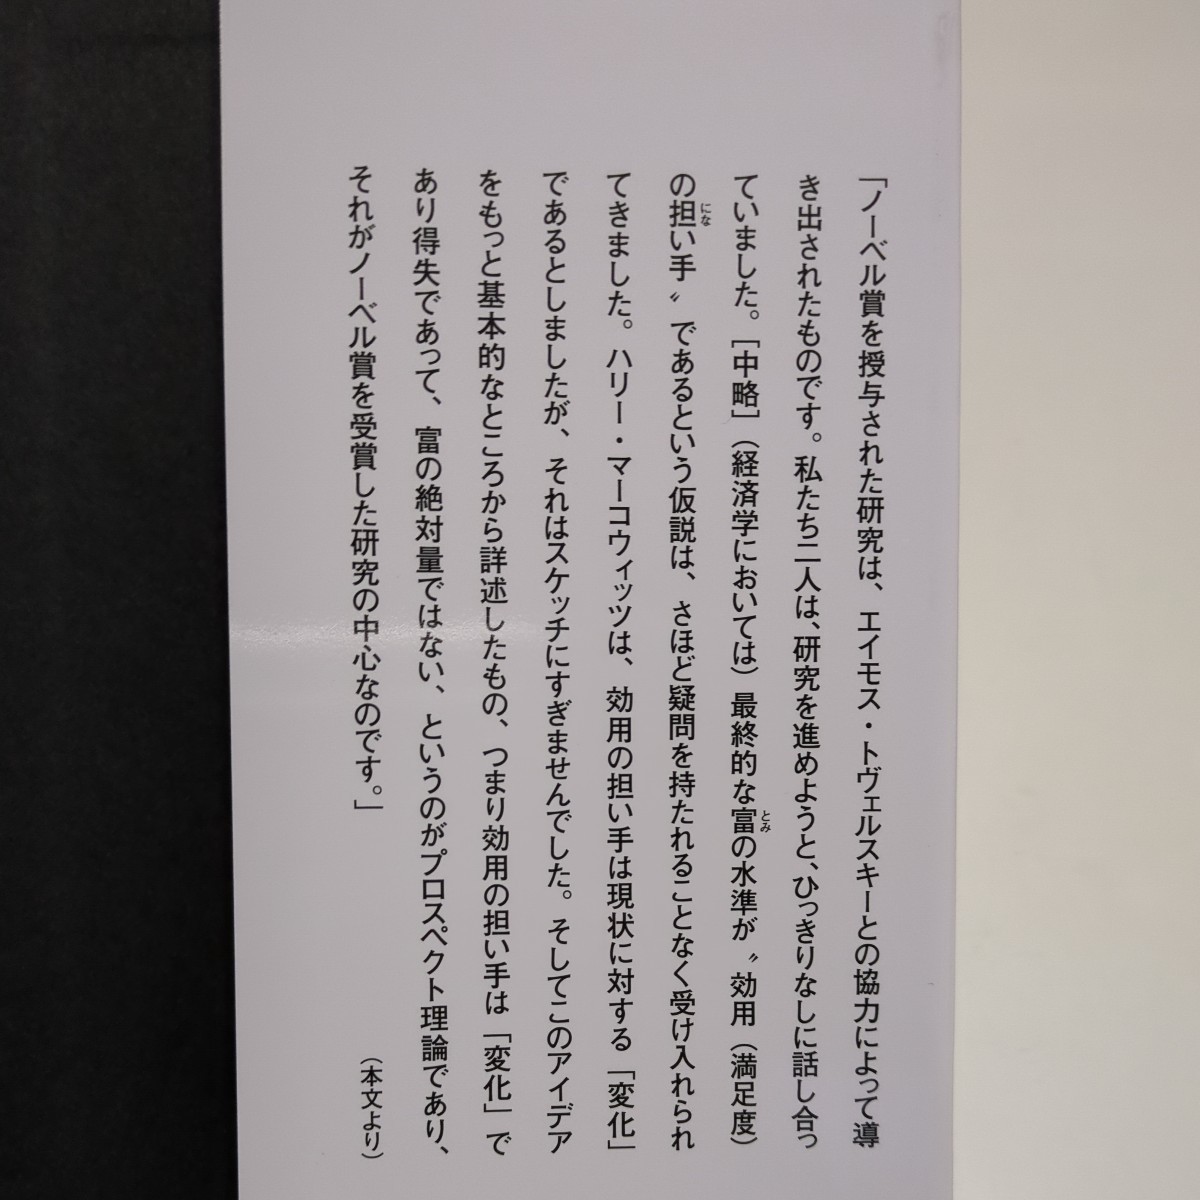 「ノーベル賞を授与された研究は、エイモス・トヴェルスキーとの協力によって導
き出されたものです。私たち二人は、研究を進めようと、ひっきりなしに話し合っ
ていました。［中略］（経済学においては）最終的な富の水準が〝効用（満足度）
とみ
の担い手〟であるという仮説は、さほど疑問を持たれることなく受け入れられ
にな
てきました。ハリー・マーコウィッツは、効用の担い手は現状に対する「変化」
であるとしましたが、それはスケッチにすぎませんでした。そしてこのアイデア
をもっと基本的なところから詳述したもの、つまり効用の担い手は「変化」で
あり得失であって、富の絶対量ではない、というのがプロスペクト理論であり、
それがノーベル賞を受賞した研究の中心なのです。」
（本文より）